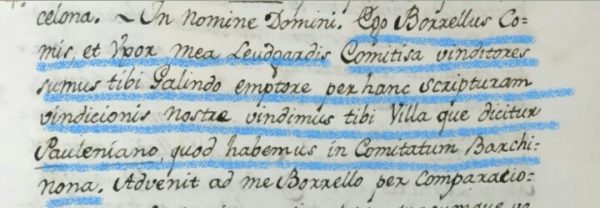 celona. ~ In Nomine Domini. Ego Borrellus Co-
mis, et Vxor mea Leudgardis Comitisa vinditores
sumus tibi Galindo emptore per hanc scripturam
vindicionis nostre vindimus tibi Villa que dicitur
Pauleniano, quod habemus in Comitatum Barchi-
nona. Advenit ad me Borrello per Comparatio-